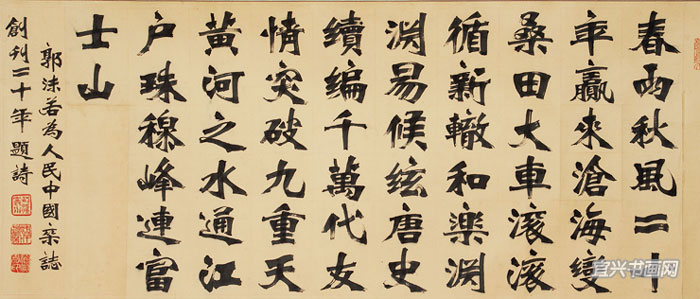 春雨秋風二十
年贏來滄海變
桑田大車滾滾
循新轍和樂淵
淵易候絃唐史
續編千萬代友
情突破九重天
黃河之水通江
户珠穆峰連富
士山
郭沫若為人民中國雜誌
創刊二十年題詩
宜兴书画网